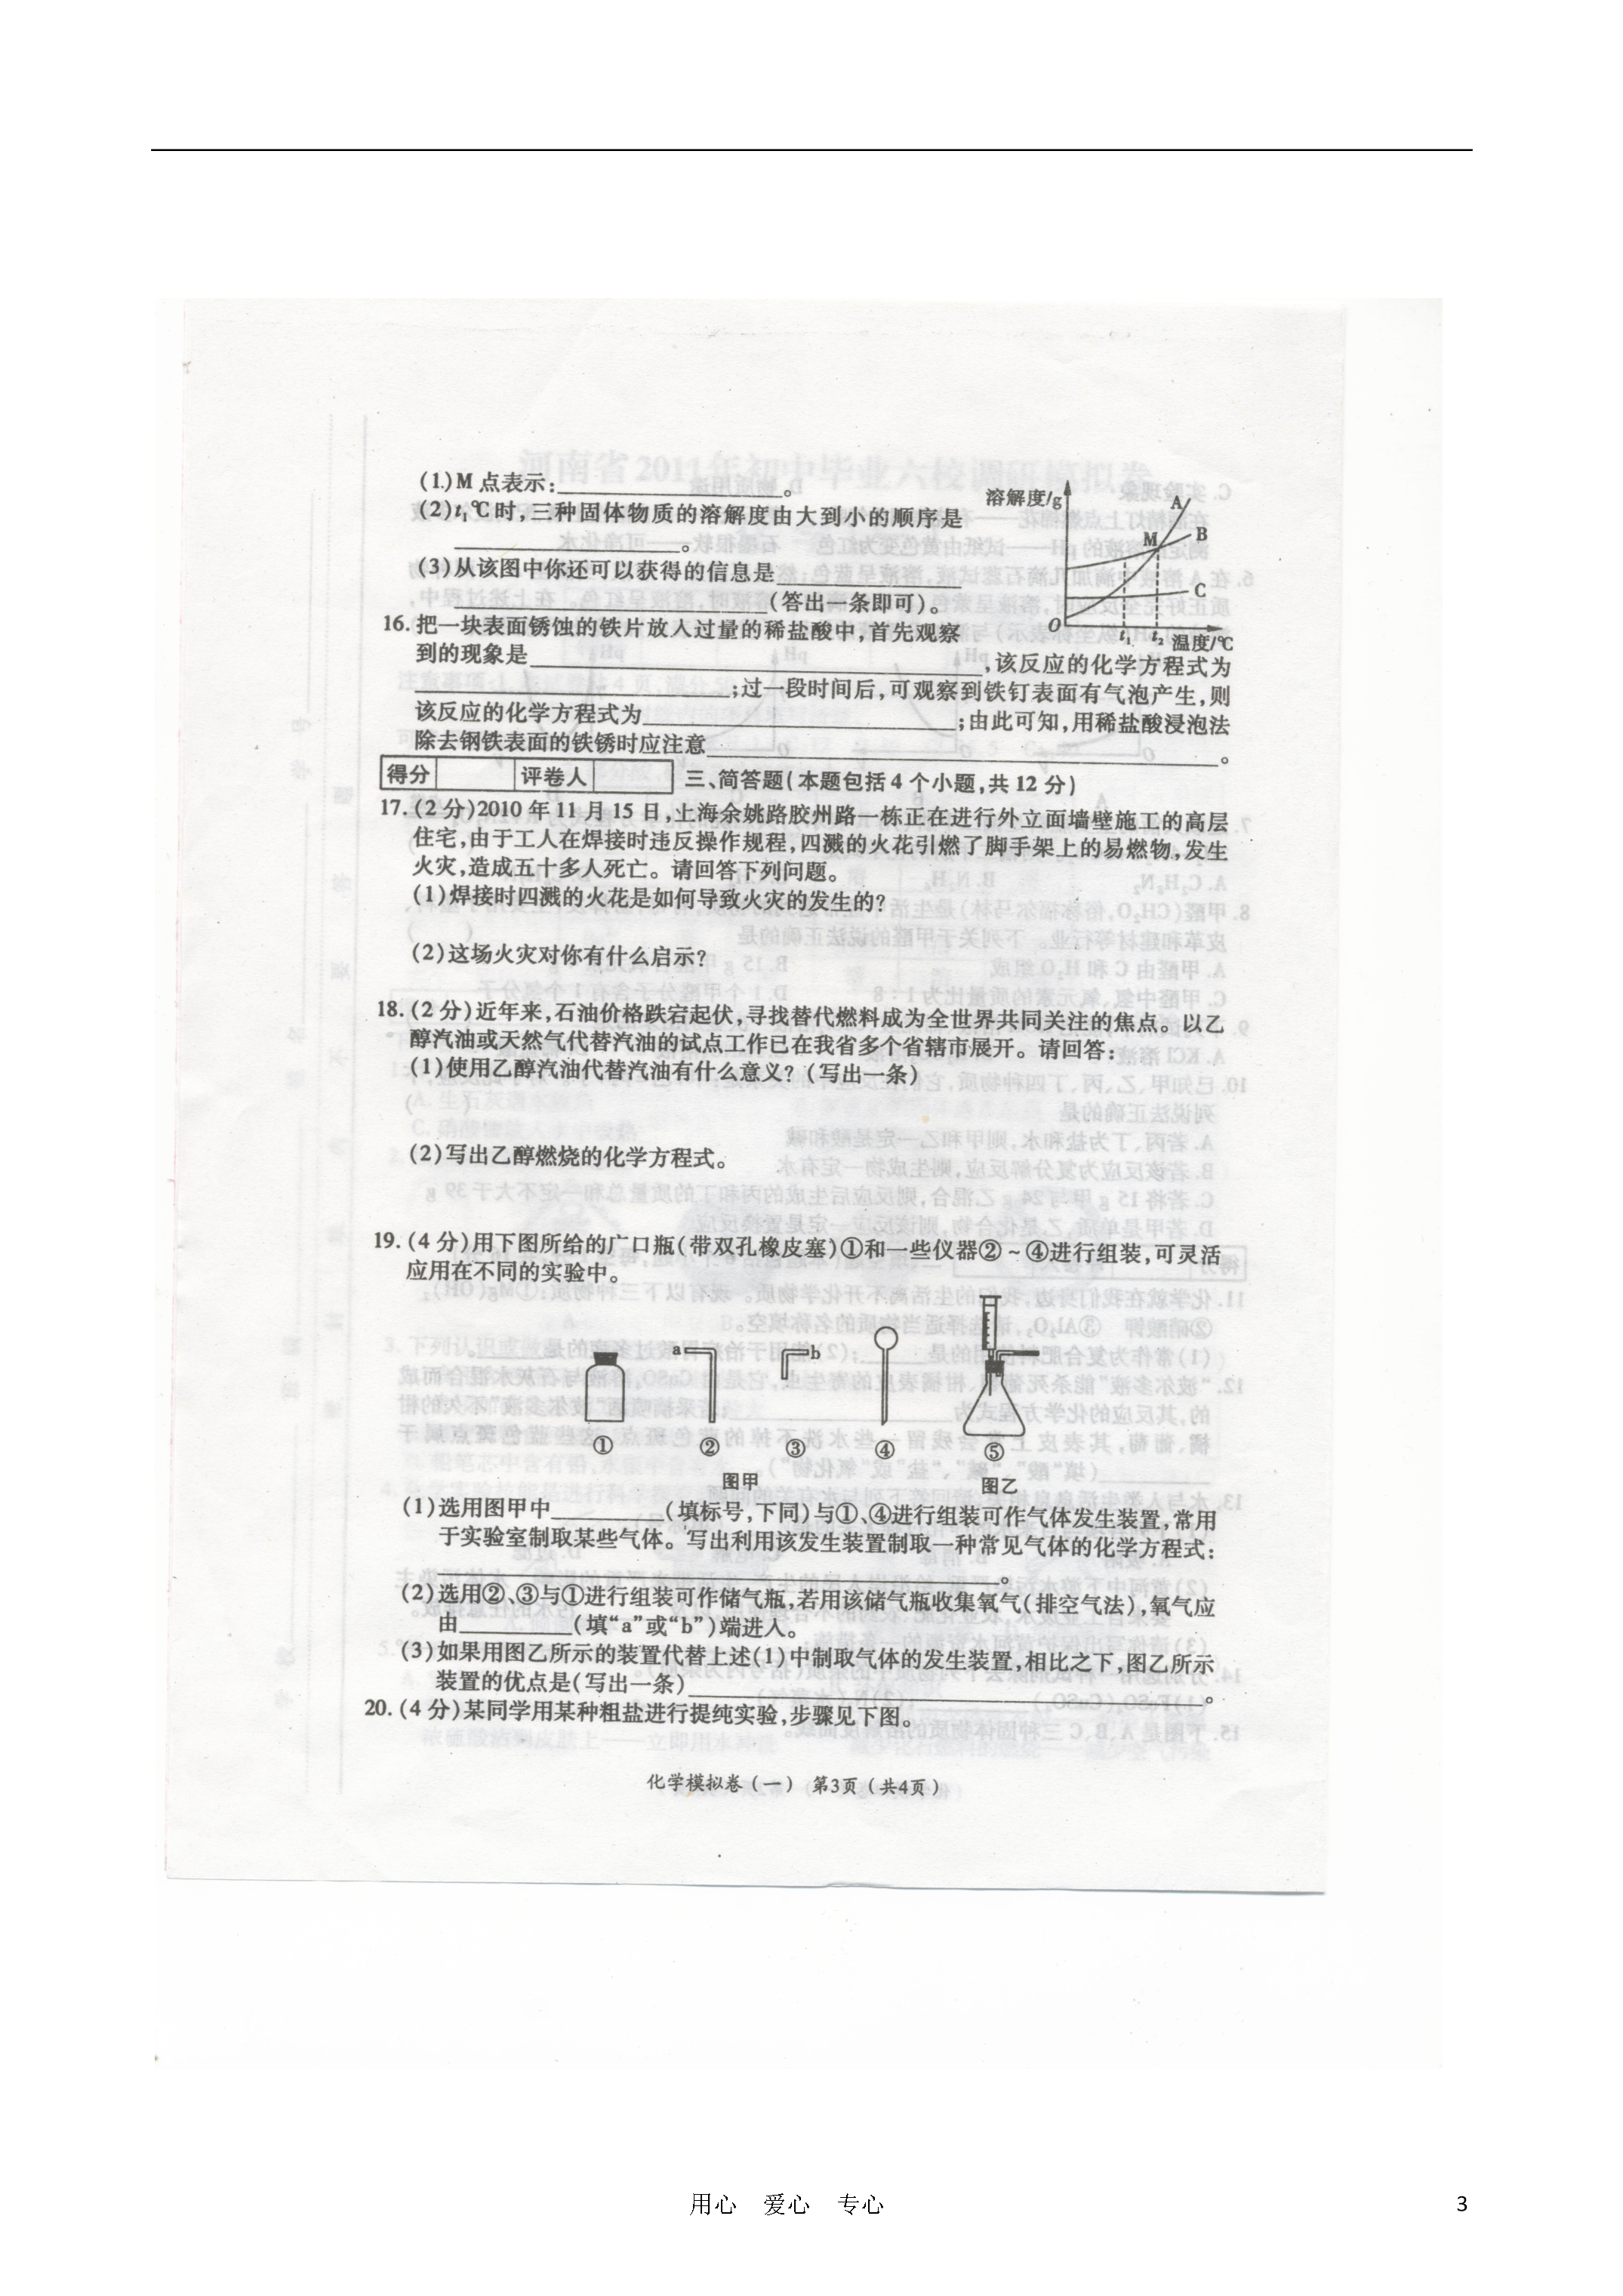 (1)M 点表示:____________。
(2)t₁℃时,三种固体物质的溶解度由大到小的顺序是
____________。
(3)从该图中你还可以获得的信息是____________
____________(答出一条即可)。
溶解度/g
A
B
M
C
O
t₁
t₂
温度/℃
16.把一块表面锈蚀的铁片放入过量的稀盐酸中,首先观察
到的现象是____________,该反应的化学方程式为
____________;过一段时间后,可观察到铁钉表面有气泡产生,则
该反应的化学方程式为____________;由此可知,用稀盐酸浸泡法
除去钢铁表面的铁锈时应注意____________。
得分 评卷人 三、简答题(本题包括4个小题,共12分)
17.(2分)2010年11月15日,上海余姚路胶州路一栋正在进行外立面墙壁施工的高层
住宅,由于工人在焊接时违反操作规程,四溅的火花引燃了脚手架上的易燃物,发生
火灾,造成五十多人死亡。请回答下列问题。
(1)焊接时四溅的火花是如何导致火灾的发生的?
(2)这场火灾对你有什么启示?
18.(2分)近年来,石油价格跌宕起伏,寻找替代燃料成为全世界共同关注的焦点。以乙
醇汽油或天然气代替汽油的试点工作已在我省多个省辖市展开。请回答:
(1)使用乙醇汽油代替汽油有什么意义?(写出一条)
(2)写出乙醇燃烧的化学方程式。
19.(4分)用下图所给的广口瓶(带双孔橡皮塞)①和一些仪器②~④进行组装,可灵活
应用在不同的实验中。
a
b
① ② ③ ④ ⑤
图甲 图乙
(1)选用图甲中____________(填标号,下同)与①、④进行组装可作气体发生装置,常用
于实验室制取某些气体。写出利用该发生装置制取一种常见气体的化学方程式:
____________。
(2)选用②、③与①进行组装可作储气瓶,若用该储气瓶收集氧气(排空气法),氧气应
由____________(填“a”或“b”)端进入。
(3)如果用图乙所示的装置代替上述(1)中制取气体的发生装置,相比之下,图乙所示
装置的优点是(写出一条)____________。
20.(4分)某同学用某种粗盐进行提纯实验,步骤见下图。
化学模拟卷(一) 第3页(共4页)
用心 爱心 专心
3